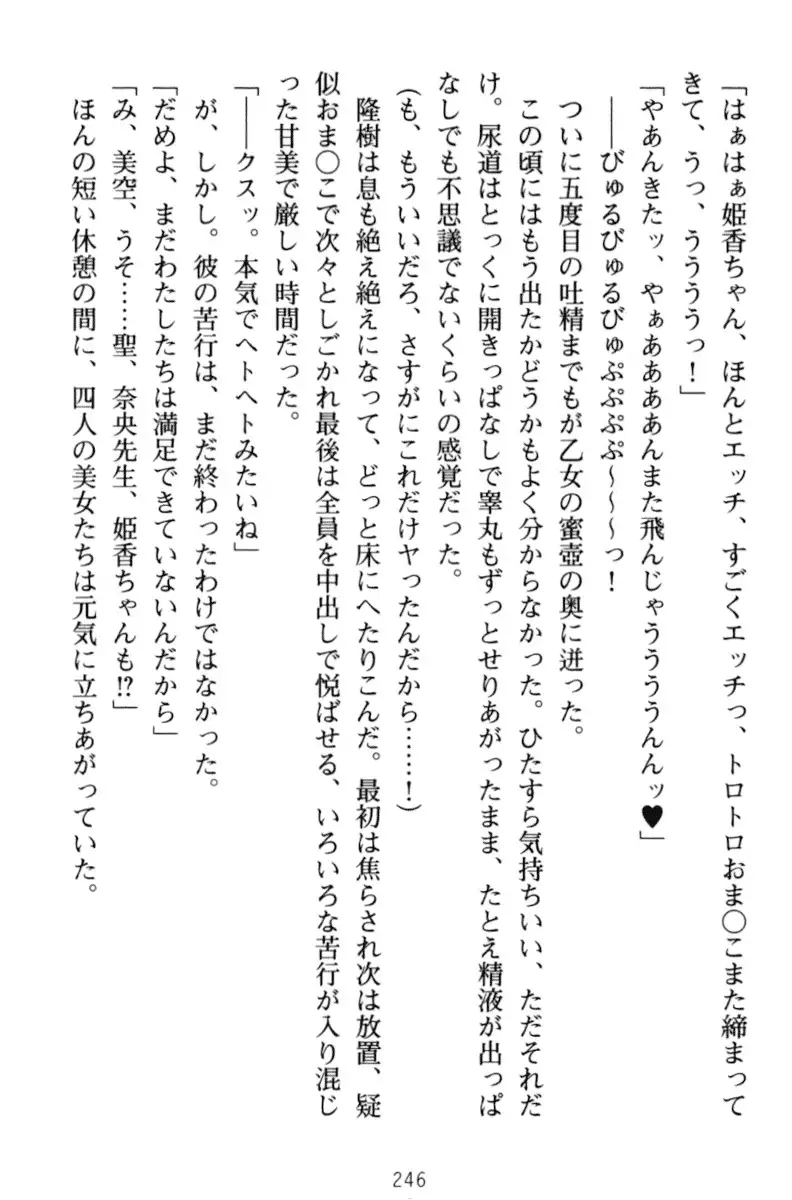 「はぁはぁ姫香ちゃん、ほんとエッチ、すごくエッチっ、トロトロおま〇こまた締まって
きて、うっ、うううっ！」
「やあんきたッ、やぁああああんまた飛んじゃうううんんッ♥」
――びゅるびゅるびゅぷぷぷぷ～～～っ！
ついに五度目の吐精までもが乙女の蜜壺の奥に迸った。
この頃にはもう出たかどうかもよく分からなかった。ひたすら気持ちいい、ただそれだ
け。尿道はとっくに開きっぱなしで睾丸もずっとせりあがったまま、たとえ精液が出っぱ
なしでも不思議でないくらいの感覚だった。
（も、もういいだろ、さすがにこれだけヤったんだから……！）
隆樹は息も絶え絶えになって、どっと床にへたりこんだ。最初は焦らされ次は放置、疑
似おま〇こで次々としごかれ最後は全員を中出しで悦ばせる、いろいろな苦行が入り混じ
った甘美で厳しい時間だった。
「――クスッ。本気でヘトヘトみたいね」
が、しかし。彼の苦行は、まだ終わったわけではなかった。
「だめよ、まだわたしたちは満足できていないんだから」
「み、美空、うそ……聖、奈央先生、姫香ちゃんも!?」
ほんの短い休憩の間に、四人の美女たちは元気に立ちあがっていた。
246